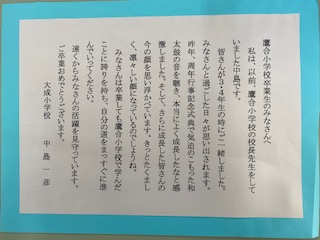 鷹合小学校卒業生のみなさんへ
私は、以前、鷹合小学校の校長先生をして
いました中島です。
皆さんが３・４年生の時にご一緒しました。
みなさんと過ごした日々が思い出されます。
昨年、周年行事記念式典で気迫のこもった和
太鼓の音を聴き、本当によく成長したなと感
激しました。そして、さらに成長した皆さんの
今の顔を思い浮かべています。きっとたくまし
く、凛々しい顔になっているのでしょうね。
みなさんは卒業しても鷹合小学校で学んだ
ことに誇りを持ち、自分の道をまっすぐに進
んでいってください。
遠くからみなさんの活躍を見守っています。
ご卒業おめでとうございます。
大成小学校　中島　一彦